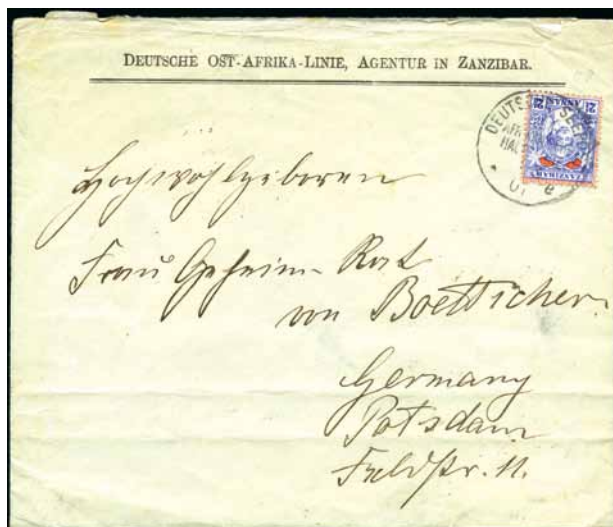 DEUTSCHE OST-AFRIKA-LINIE, AGENTUR IN ZANZIBAR.
DEUTS
SEEPO
HAU
ZANZIBAR
ANNAS
2½
2½
01
e
Hochwohlgeboren
Frau Geheim-Rat
von Boetticher
Germany
Potsdam
Feldstr. 11.